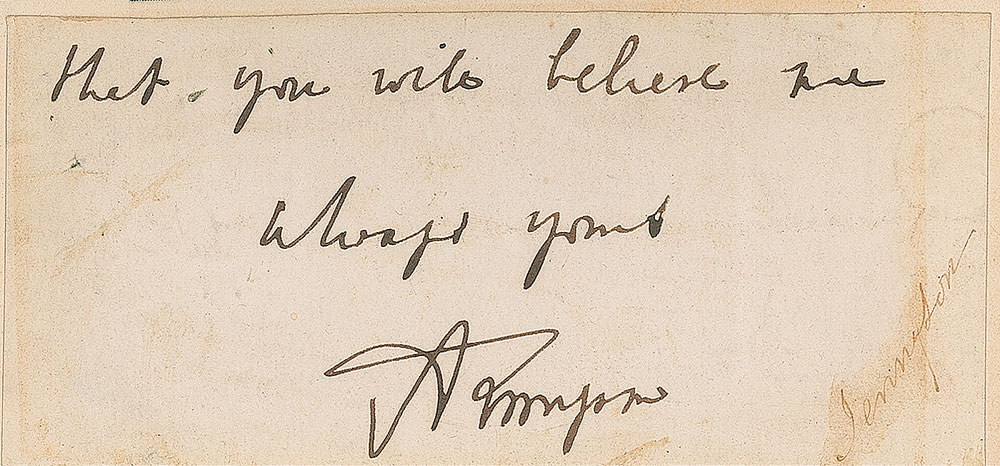 that you will believe me
always yours
A Tennyson
Tennyson.